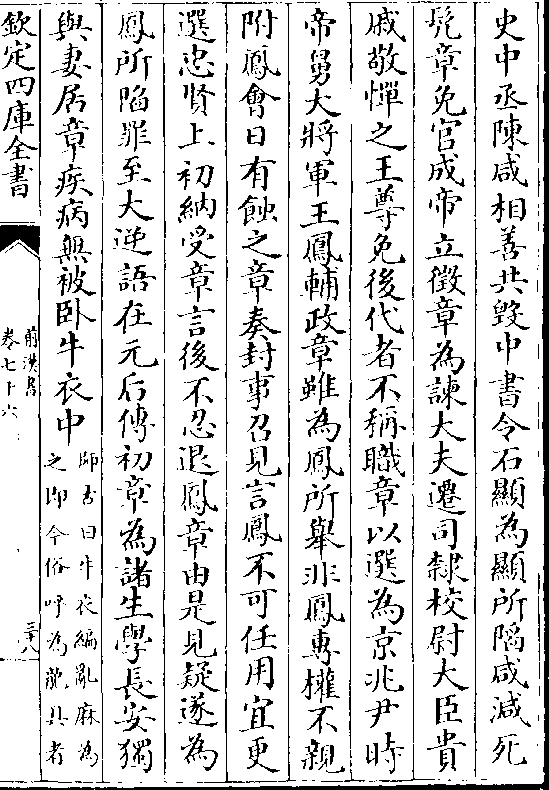 史中丞陳咸相善共毀中書令石顯為顯所陷咸減死
髠章免官成帝立徵章為諫大夫遷司隸校尉大臣貴
戚敬憚之王尊免後代者不稱職章以選為京兆尹時
帝舅大將軍王鳳輔政章雖為鳳所舉非鳳專權不親
附鳳會日有蝕之章奏封事召見言鳳不可任用宜更
選忠賢上初納受章言後不忍退鳳章由是見疑遂為
鳳所陷罪至大逆語在元后傳初章為諸生學長安獨
與妻居章疾病無被卧牛衣中
師古曰牛衣編亂麻為
之即今俗呼為龍具者
欽定四庫全書
前漢書
卷七十六
三十八